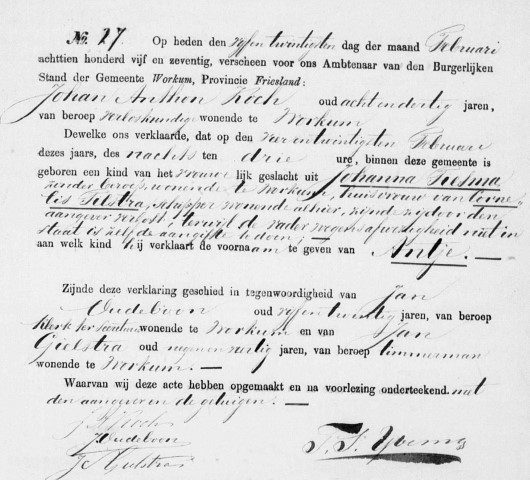 No. 27. Op heden den vijfentwintigsten dag der maand Februari
achttien honderd vijf en zeventig, verscheen voor ons Ambtenaar van den Burgerlijken
Stand der Gemeente Workum, Provincie Friesland:
Johan Anthon Koch oud achtendertig jaren,
van beroep verloskundige wonende te Workum
Dewelke ons verklaarde, dat op den vierentwintigsten Februari
dezes jaars, des nachts ten drie ure, binnen deze gemeente is
geboren een kind van het vrouwelijk geslacht uit Johanna
zonder beroep, wonende te Workum, huisvrouw van Corne-
lis schipper wonende alhier, zijnde zij door den
aangever verlost, terwijl de vader wegens afwezigheid niet in
staat is zelf de aangifte te doen; —
aan welk kind hij verklaart de voornaam te geven van Antje. —
Zijnde deze verklaring geschied in tegenwoordigheid van Jan
Oudeboon oud vijfentwintig jaren, van beroep
klerk ter secretarie wonende te Workum en van Jan
Gielstra oud negenenveertig jaren, van beroep timmerman
wonende te Workum. —
Waarvan wij deze acte hebben opgemaakt en na voorlezing onderteekend met
den aangever en de getuigen. —
Koch
JOudeboon
J Gielstra
T. T. Ypema